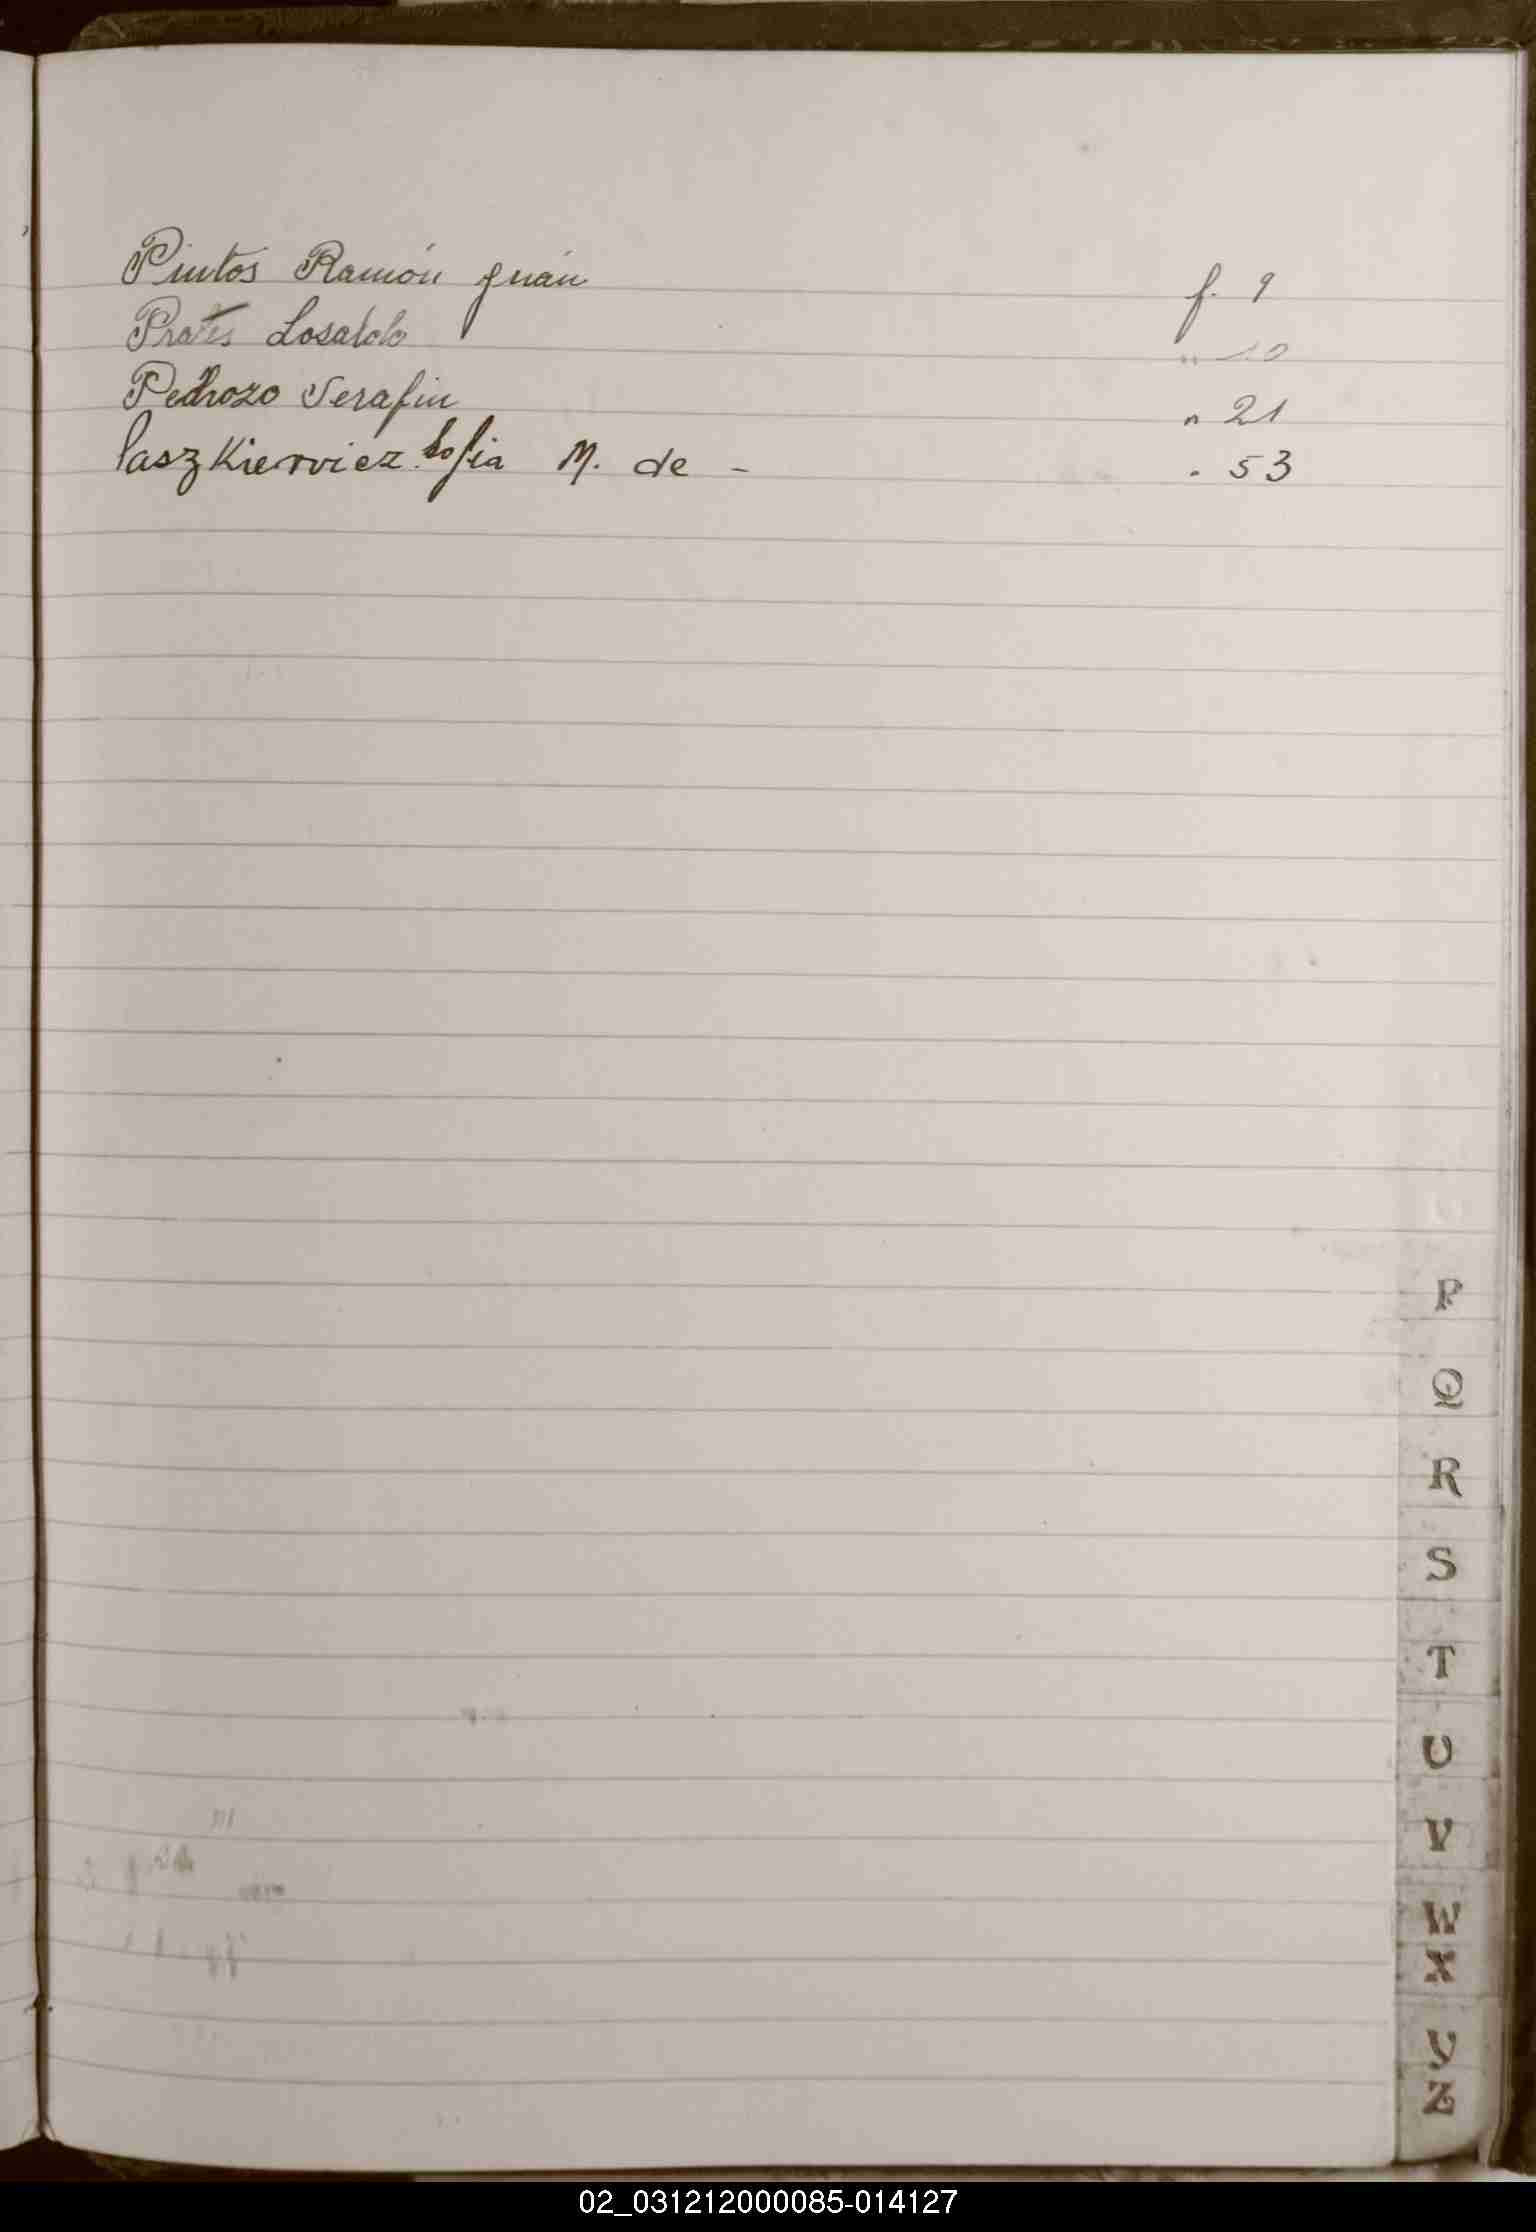 Pintos Ramón Juán f. 9
Prates Losaldo " 10
Pedrozo Serafin " 21
Paszkiewicz Sofia M. de - " 53
P
Q
R
S
T
U
V
W
X
Y
Z
02_031212000085-014127